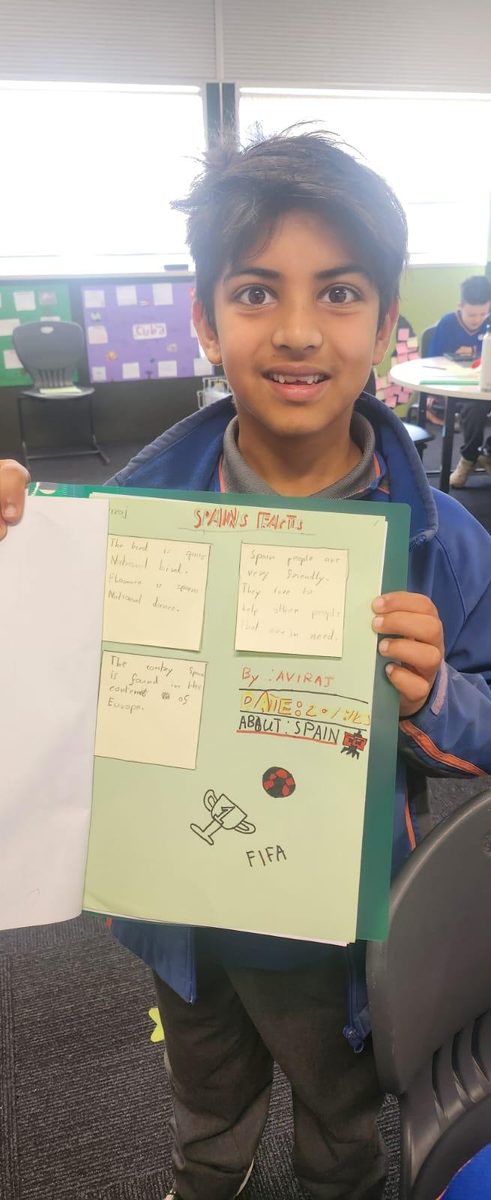 Cuba
SPAIN'S FACTS
The bird is
National bird.
Flamenco is spains
National dance.
Spain people are
very friendly.
They love to
help other people
that are in need.
The contry Spain
is found in the
contenet of
Europe.
By: AVIRAJ
DATE:
ABOUT: SPAIN
1
FIFA